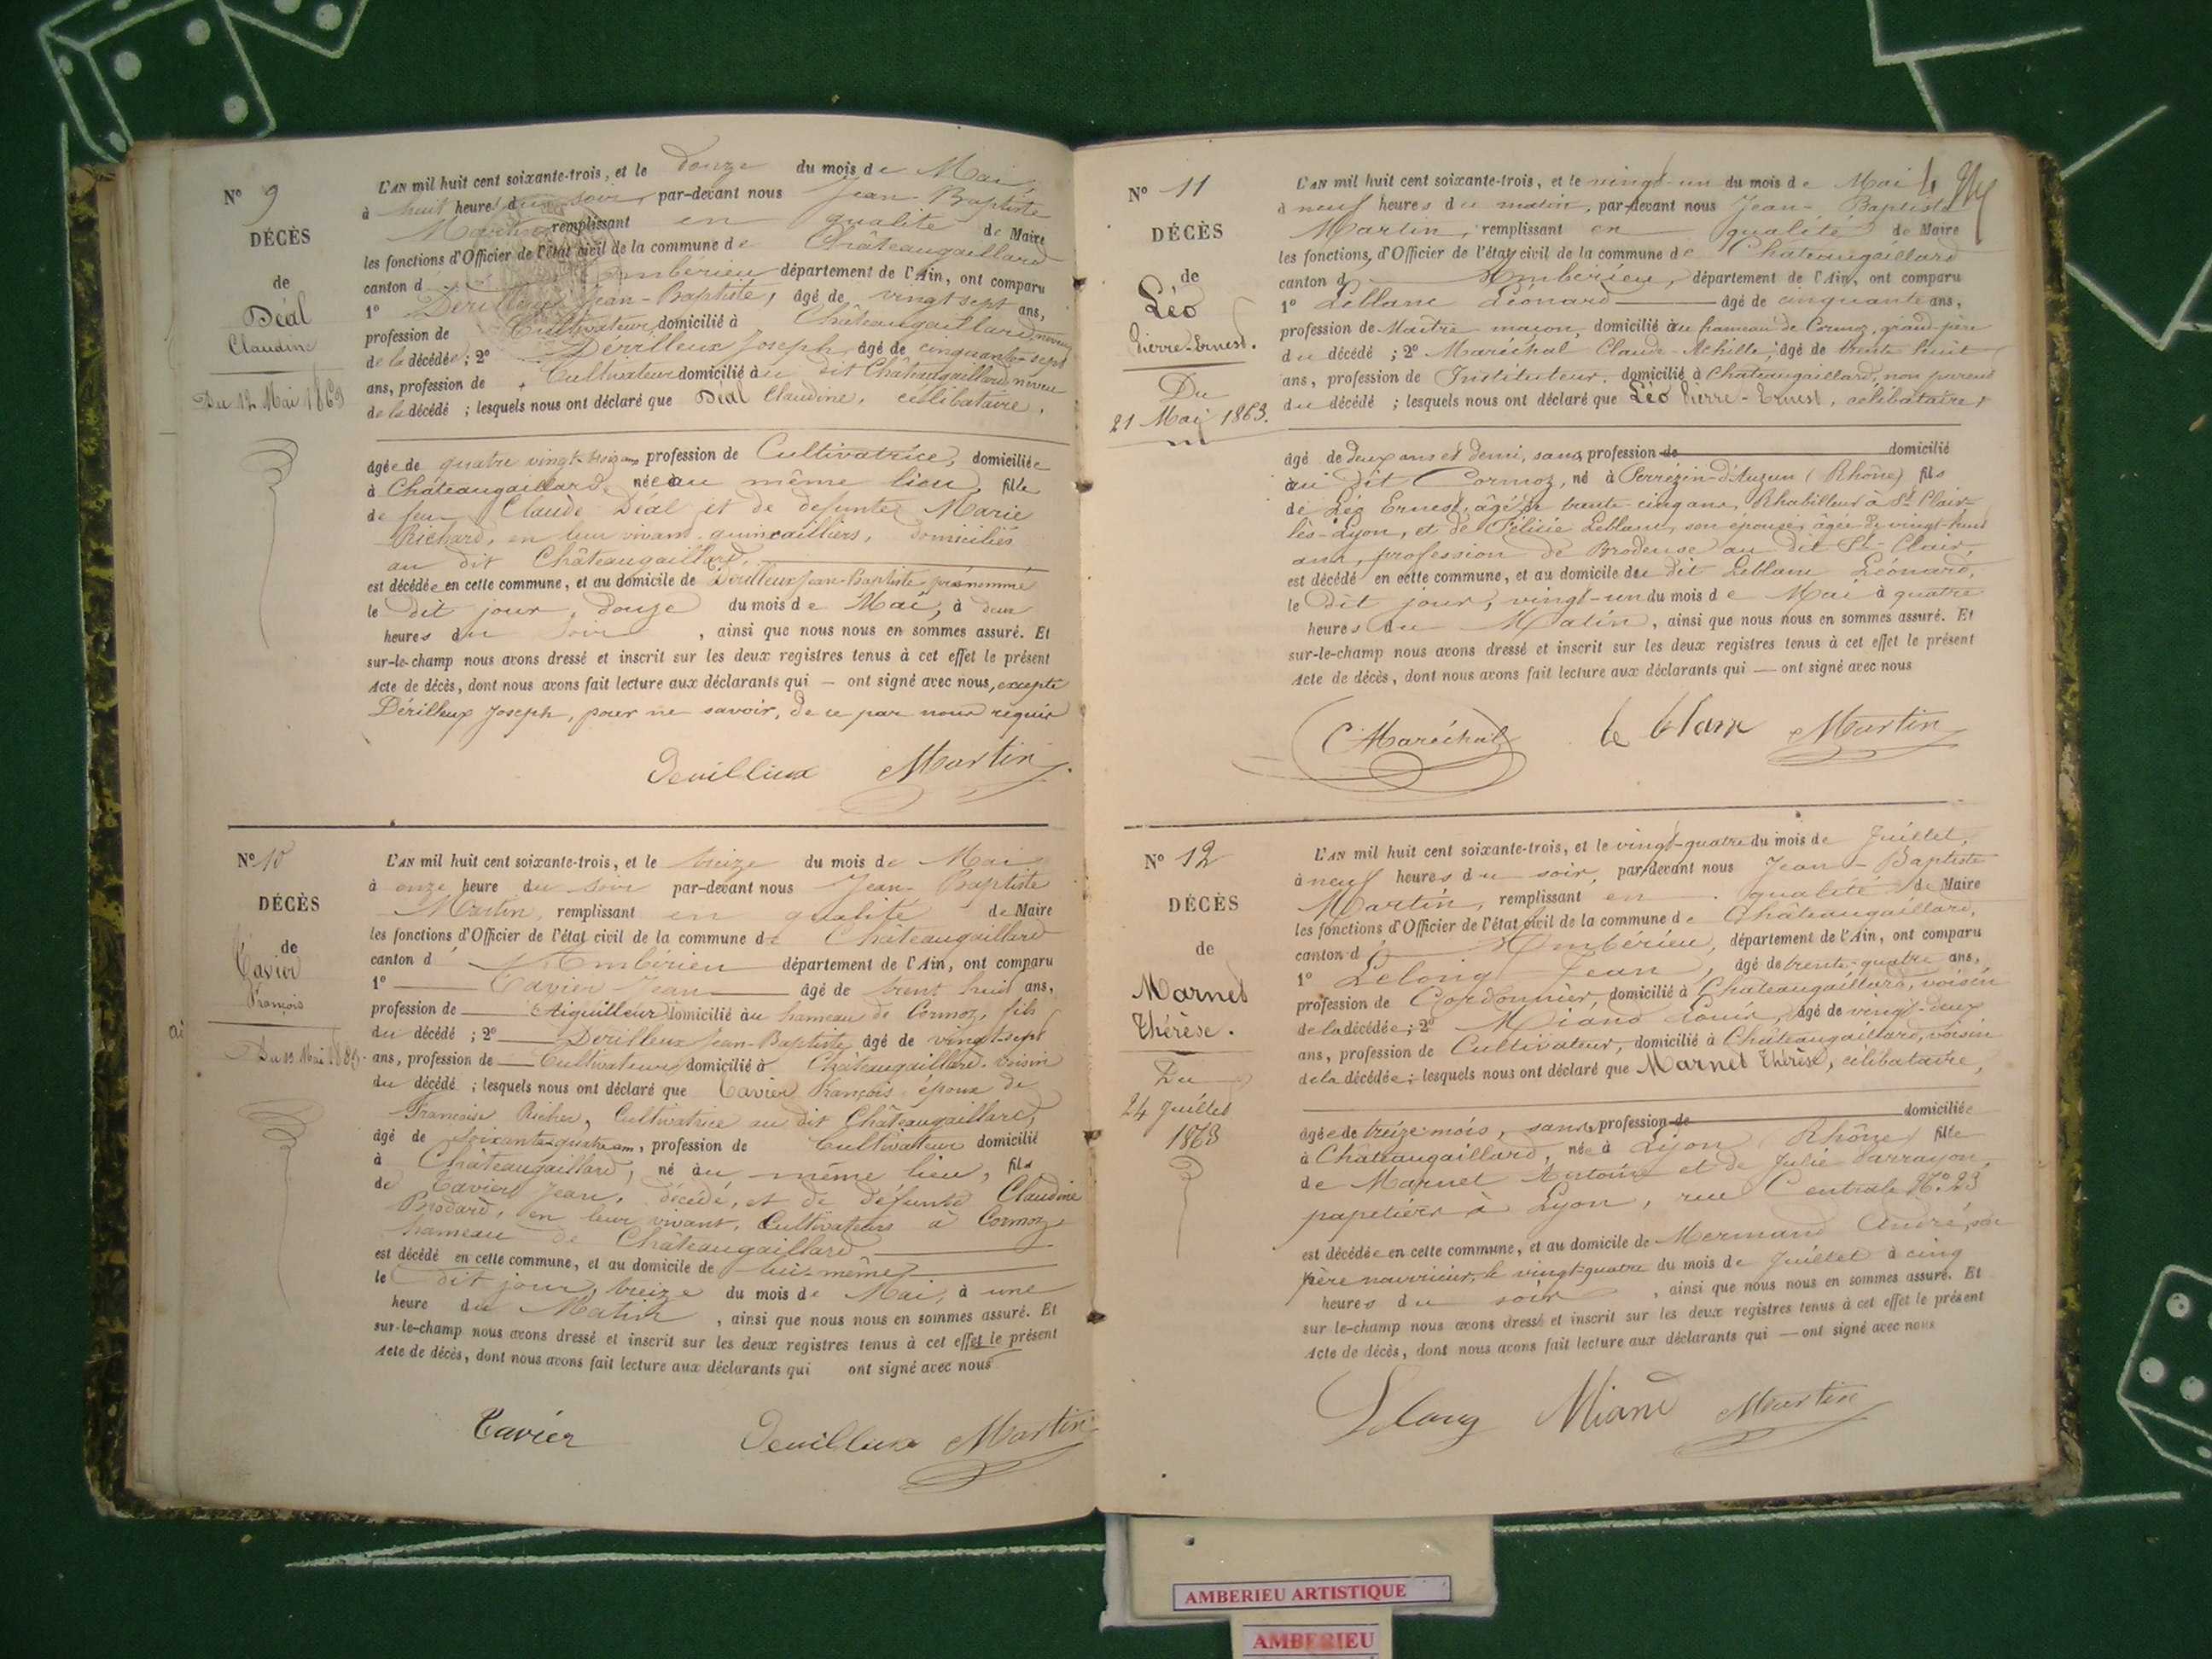 N° 9
DÉCÈS
de
Déal
Claudine
Du 12 Mai 1863
L'AN mil huit cent soixante-trois, et le douze du mois de Mai,
à huit heures du soir, par-devant nous Jean Baptiste
Martin, remplissant en qualité de Maire
les fonctions d'Officier de l'état civil de la commune de Châteaugaillard
canton d' Ambérieu département de l'Ain, ont comparu
1° Dérilleux Jean-Baptiste, âgé de vingt sept ans,
profession de Cultivateur, domicilié à Châteaugaillard, neveu
de la décédée ; 2° Dérilleux Joseph, âgé de cinquante-sept
ans, profession de Cultivateur domicilié au dit Châteaugaillard, neveu
de la décédé ; lesquels nous ont déclaré que Déal Claudine, célibataire,
âgée de quatre vingt-trois ans profession de Cultivatrice, domiciliée
à Châteaugaillard, née au même lieu, fille
de feu Claude Déal et de defunte Marie
Richard, en leur vivant quincailliers, domiciliés
au dit Châteaugaillard,
est décédée en cette commune, et au domicile de Dérilleux Jean-Baptiste prénommé
le dit jour, douze du mois de Mai, à deux
heures du soir, ainsi que nous nous en sommes assuré. Et
sur-le-champ nous avons dressé et inscrit sur les deux registres tenus à cet effet le présent
Acte de décès, dont nous avons fait lecture aux déclarants qui — ont signé avec nous, excepté
Dérilleux Joseph, pour ne savoir, de ce par nous requis
Derilleux Martin
N° 10
DÉCÈS
de
Cavier
François
Du 13 Mai 1863
L'AN mil huit cent soixante-trois, et le treize du mois de Mai
à onze heure du soir par-devant nous Jean-Baptiste
Martin, remplissant en qualité de Maire
les fonctions d'Officier de l'état civil de la commune de Châteaugaillard
canton d' Ambérieu département de l'Ain, ont comparu
1° Cavier Jean âgé de trent huit ans,
profession de Aiguilleur domicilié au hameau de Cormoz, fils
du décédé ; 2° Derilleux Jean-Baptiste âgé de vingt-sept
ans, profession de Cultivateur domicilié à Châteaugaillard, voisin
du décédé ; lesquels nous ont déclaré que Cavier François époux de
Françoise Richer, Cultivatrice au dit Châteaugaillard,
âgé de soixante-quatre ans, profession de Cultivateur domicilié
à Châteaugaillard, né au même lieu, fils
de Cavier Jean, décédé, et de défunte Claudine
Brodard, en leur vivant, Cultivateurs à Cormoz
hameau de Châteaugaillard
est décédé en cette commune, et au domicile de lui-même
le dit jour, treize du mois de Mai, à une
heure du Matin, ainsi que nous nous en sommes assuré. Et
sur-le-champ nous avons dressé et inscrit sur les deux registres tenus à cet effet le présent
Acte de décès, dont nous avons fait lecture aux déclarants qui ont signé avec nous
Cavier Derilleux Martin
N° 11
DÉCÈS
de
Léo
Pierre-Ernest.
Du
21 Mai 1863.
L'AN mil huit cent soixante-trois, et le vingt-un du mois de Mai
à neuf heures du matin, par-devant nous Jean-Baptiste
Martin, remplissant en qualité de Maire
les fonctions d'Officier de l'état civil de la commune de Chateaugaillard
canton d' Amberieu, département de l'Ain, ont comparu
1° Leblanc Léonard âgé de cinquante ans,
profession de Maître maçon, domicilié au hameau de Cormoz, grand-père
du décédé ; 2° Maréchal Claude-Achille, âgé de trente huit
ans, profession de Instituteur, domicilié à Chateaugaillard, non parent
du décédé ; lesquels nous ont déclaré que Léo Pierre-Ernest, célibataire,
âgé de deux ans et demi, sans profession de domicilié
au dit Cormoz, né à Perrezin-d'Auzun (Rhône) fils
de Léo Ernest, âgé de trente-cinq ans, Rhabilleur à St Clair
lès-Lyon, et de Félicie Leblanc, son épouse, âgée de vingt-huit
ans, profession de Brodeuse au dit St-Clair,
est décédé en cette commune, et au domicile du dit Leblanc Léonard,
le dit jour, vingt-un du mois de Mai à quatre
heures du Matin, ainsi que nous nous en sommes assuré. Et
sur-le-champ nous avons dressé et inscrit sur les deux registres tenus à cet effet le présent
Acte de décès, dont nous avons fait lecture aux déclarants qui — ont signé avec nous
C Maréchal le blanc Martin
N° 12
DÉCÈS
de
Marnet
Thérèse.
Du
24 Juillet
1863
L'AN mil huit cent soixante-trois, et le vingt-quatre du mois de Juillet,
à neuf heures du soir, par-devant nous Jean-Baptiste
Martin, remplissant en qualité de Maire
les fonctions d'Officier de l'état civil de la commune de Châteaugaillard,
canton d' Ambérieu, département de l'Ain, ont comparu
1° Lelong Jean, âgé de trente-quatre ans,
profession de Cordonnier, domicilié à Chateaugaillard, voisin
de la décédée ; 2° Miand Louis, âgé de vingt-deux
ans, profession de Cultivateur, domicilié à Châteaugaillard, voisin
de la décédée ; lesquels nous ont déclaré que Marnet Thérèse, célibataire,
âgée de treize mois, sans profession de domiciliée
à Chateaugaillard, née à Lyon (Rhône) fille
de Marnet Antoine et de Julie Parrayon,
papetiers à Lyon, rue Centrale N° 23
est décédée en cette commune, et au domicile de Mermand André, son
père nourricier, le vingt-quatre du mois de Juillet à cinq
heures du soir, ainsi que nous nous en sommes assuré. Et
sur le-champ nous avons dressé et inscrit sur les deux registres tenus à cet effet le présent
Acte de décès, dont nous avons fait lecture aux déclarants qui — ont signé avec nous
Lelong Miand Martin
AMBERIEU ARTISTIQUE
AMBERIEU